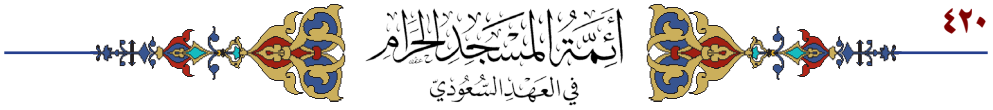 ٤٢٠
أَئِمَّةُ المَسْجِدِ الحَرَامِ
فِي العَهْدِ السُّعُودِيِّ